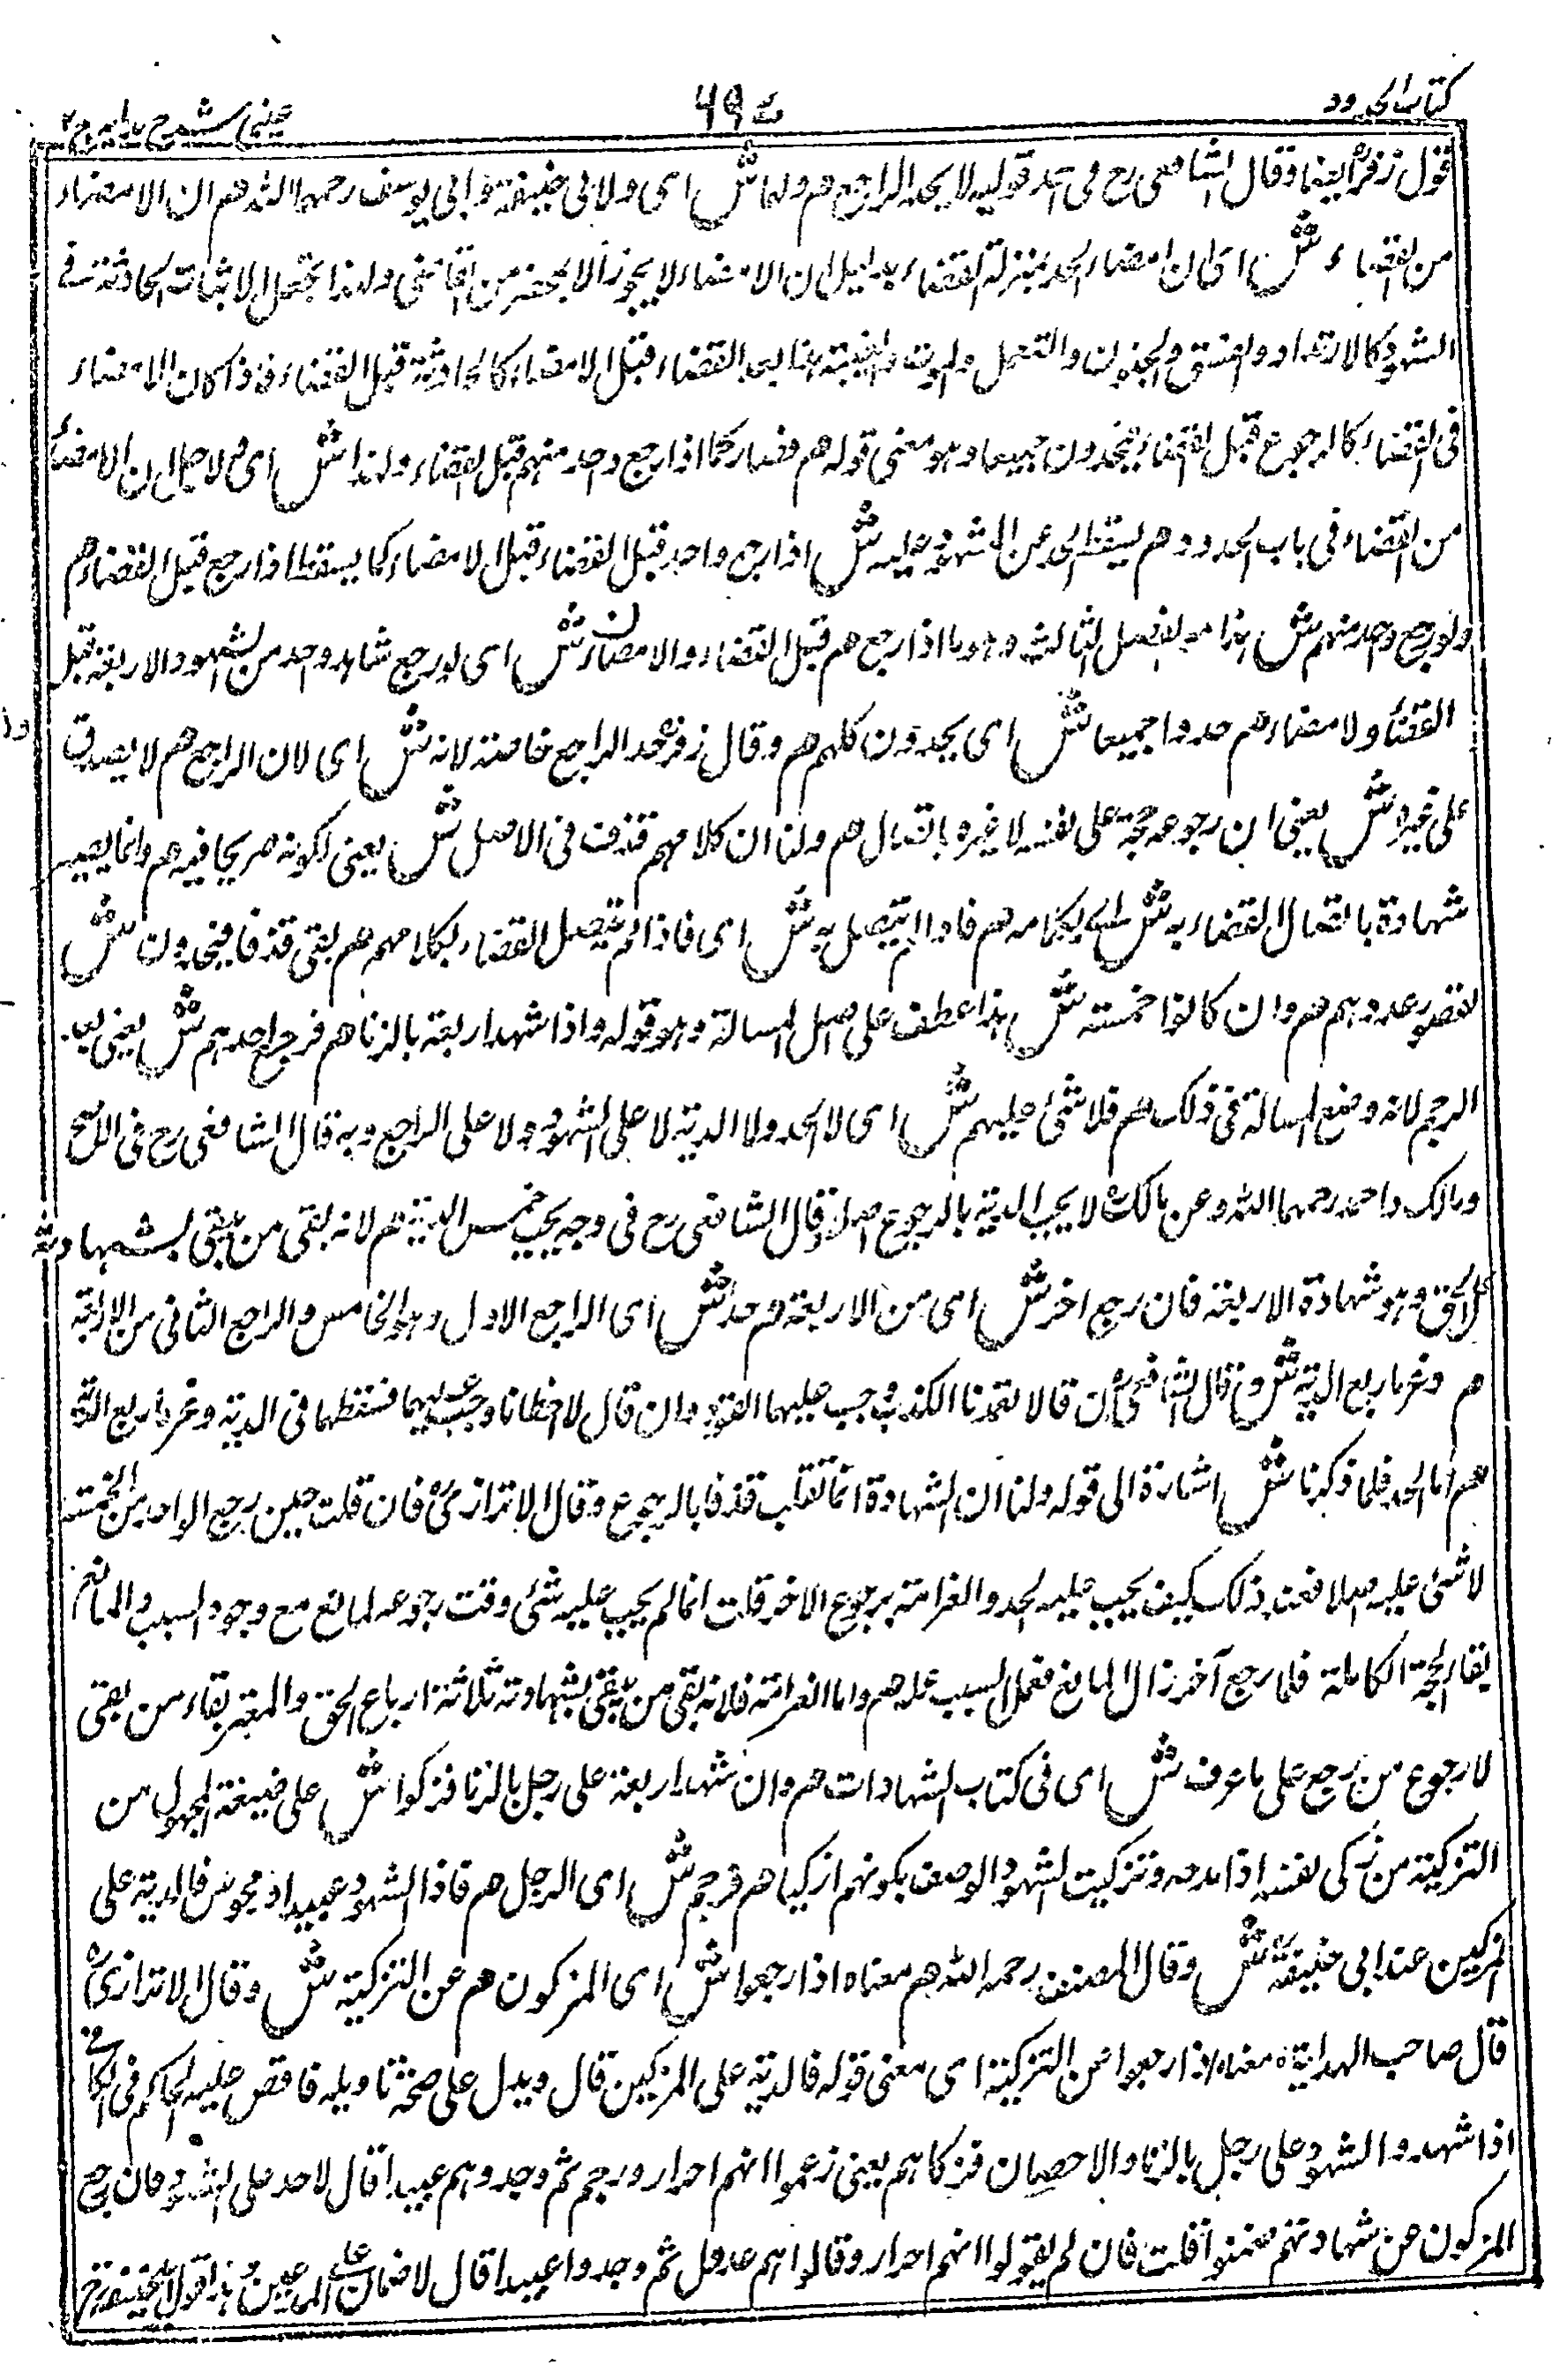 كتاب الحدود
٤٩٤
عينى شرح هدايه ج ٢
قول زفر ايضا وقال الشافعى رح فى احد قوليه لا يحد الراجع هم ولهما ش اى ولابى حنيفة وابى يوسف رحمهما الله هم ان الامضاء
من القضاء ش اى ان امضاء الحد بمنزلة القضاء بدليل ان الامضاء لا يجوز الا بمحضر من القاضى ولهذا تجعل الاثبات الحادثة فى
الشهود كالارتداد والفسق والجنون والموت والغيبة بعد القضاء قبل الامضاء كالحادثة قبل القضاء فاذا كان الامضاء
فى القضاء كالرجوع قبل القضاء فيحدون جميعا وهو معنى قوله هم فصار كما اذا رجع واحد منهم قبل القضاء ولهذا ش اى ولاجل ان الامضاء
من القضاء فى باب الحدود هم يسقط الحد عن المشهود عليه ش اذا رجع واحد قبل القضاء قبل الامضاء كما يسقط اذا رجع قبل القضاء هم
ولو رجع واحد منهم ش هذا هو الفصل الثالث وهو ما اذا رجع هم قبل القضاء والامضاء ش اى لو رجع شاهد واحد من الشهود الاربعة قبل
القضاء والامضاء هم حدوا جميعا ش اى يحدون كلهم هم وقال زفر حد الراجع خاصة لانه ش اى لان الراجع هم لا يصدق
على غيره ش يعنى ان رجوعه حجة على نفسه لا غيره هم ولنا ان كلامهم قذف فى الاصل ش يعنى لكونه صريحا فيه هم وانما يصير
شهادة باتصال القضاء به ش اى بكلامه هم فاذا لم يتصل به ش اى فاذا لم يتصل القضاء بكلامهم هم بقى قذفا فيحدون ش
لقصور عددهم هم وان كانوا خمسة ش هذا عطف على اصل المسالة وهو قوله واذا شهد اربعة بالزنا هم فرجع احدهم ش يعنى بعد
الرجم لانه وضع المسالة فى ذلك هم فلا شئ عليهم ش اى لا الحد ولا الدية لا على الشهود ولا على الراجع وبه قال الشافعى رح فى الاصح
ومالك واحمد رحمهما الله وعن مالك لا يجب الدية بالرجوع اصلا وقال الشافعى رح فى وجه يجب خمس الدية هم لانه بقى من يبقى بشهادته
كل الحق وهو شهادة الاربعة فان رجع اخر ش اى من الاربعة هم حدا ش اى الراجع الاول وهو الخامس والراجع الثانى من الاربعة
هم وغرما ربع الدية ش وقال الشافعى ان قالا تعمدنا الكذب وجب عليهما القود وان قالا اخطانا وجب عليهما قسطهما فى الدية وغرما ربع الدية
هم اما الحد فلما ذكرنا ش اشارة الى قوله ولنا ان الشهادة انما تقلب قذفا بالرجوع وقال الاترازى فان قلت حين رجع الواحد من الخمسة
لا شئ عليه اصلا فعند ذلك كيف يجب عليه الحد والغرامة برجوع الاخر قلت انما لم يجب عليه شئ وقت رجوعه لمانع مع وجود السبب والمانع
بقاء الحجة الكاملة فلما رجع آخر زال المانع فعمل السبب عمله هم واما الغرامة فلانه بقى من يبقى بشهادته ثلاثة ارباع الحق والمعتبر بقاء من بقى
لا رجوع من رجع على ما عرف ش اى فى كتاب الشهادات هم وان شهد اربعة على رجل بالزنا فزكوا ش على صيغة المجهول من
التزكية من زكى نفسه اذا مدحه وتزكيت الشهود الوصف بكونهم ازكيا هم فرجم ش اى الرجل هم فاذا الشهود عبيد او مجوس فالدية على
المزكيين عند ابى حنيفة ش وقال المصنف رحمه الله هم معناه اذا رجعوا ش اى المزكون هم عن التزكية ش وقال الاترازى
قال صاحب الهداية معناه اذا رجعوا عن التزكية اى معنى قوله فالدية على المزكيين قال ويدل على صحة تاويله ما نص عليه الحاكم فى الكافى
اذا شهدوا الشهود على رجل بالزنا والاحصان فزكاهم يعنى زعموا انهم احرار ورجم ثم وجدوهم عبيدا قال لا حد على الشهود فان رجع
المزكون عن شهادتهم ضمنوا قلت فان لم يقولوا انهم احرار وقالوا هم عدول ثم وجدوا عبيدا قال لا ضمان على المزكيين هذا قول ابى حنيفة رح